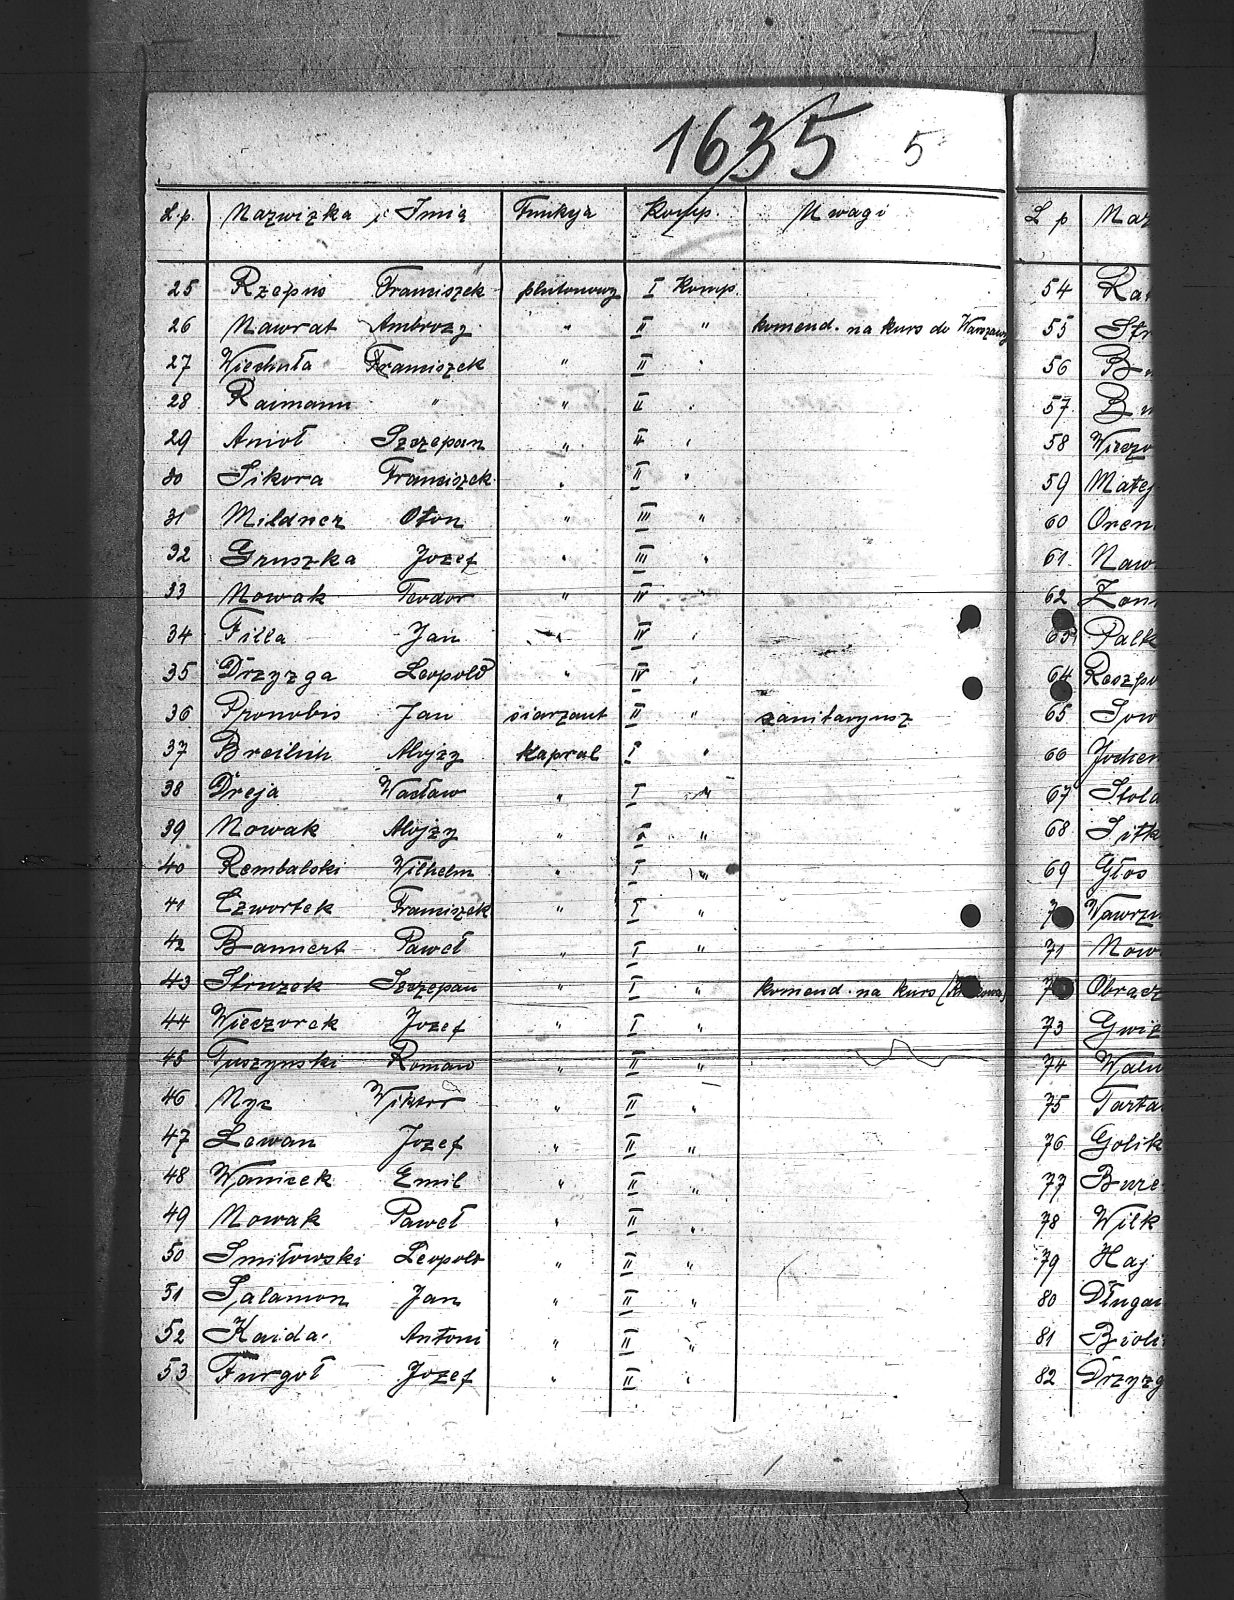 1635 5
L.p. Nazwizka i Imią Funkyja Komp. Uwagi
25 Rzepus Franciszek plutonowy I Komp.
26 Nawrat Ambrozy " II " komend. na kurs do Warszawy
27 Wiechuła Franciszek " II "
28 Raimann " " II "
29 Anioł Szczepan " II "
30 Sikora Franciszek " II "
31 Mildner Oton " III "
32 Gruszka Jozef " III "
33 Nowak Teodor " IV "
34 Filla Jan " IV "
35 Drzyzga Leopold " IV "
36 Pronobis Jan siarzant II " zanitaryusz
37 Breilich Alojzy Kapral I "
38 Dreja Wacław " I "
39 Nowak Alojzy " "
40 Rembalski Wilhelm " I "
41 Czwortek Franciszek " I "
42 Bannert Paweł " I "
43 Struzek Szczepan " I " komend. na kurs
44 Wieczorek Jozef " I "
45 Tuszynski Roman " II "
46 Nyc Wiktor " II "
47 Lewan Jozef " II "
48 Waniček Emil " II "
49 Nowak Paweł " II "
50 Smiłowski Leopold " II "
51 Salamon Jan " II "
52 Kaida Antoni " II "
53 Furgoł Jozef " II "
L p Naz
54 Ra
55 Str
56 B
57 B
58 Wieczo
59 Matej
60 Oren
61 Naw
62 Zon
63 Palk
64 Roszp
65 Sow
66 Jochem
67 Stola
68 Sitk
69 Głos
7 Wawrzy
71 Now
7 Obracz
73 Gwiz
74 Walu
75 Tarta
76 Golik
77 Bure
78 Wilk
79 Haj
80 Długai
81 Bioli
82 Drzyzg